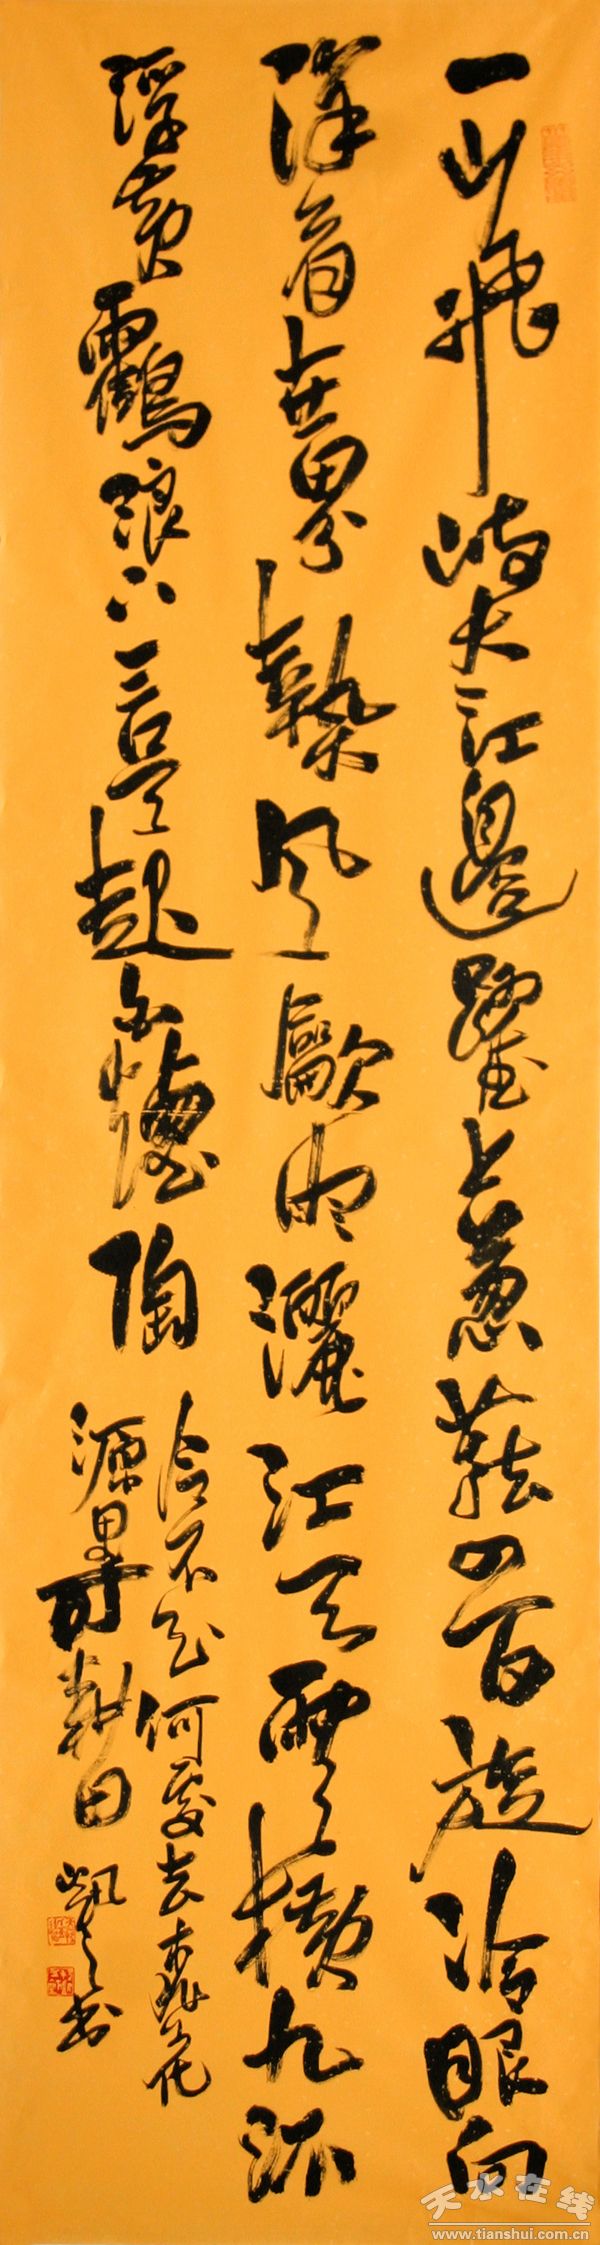 一山飛峙大江邊躍上葱蘢四百旋冷眼向
洋看世界熱風龡雨灑江天雲橫九派
浮黄鶴浪下三吴起白煙陶
令不知何處去桃花
源里可耕田 書
天水在线
www.tianshui.com.cn